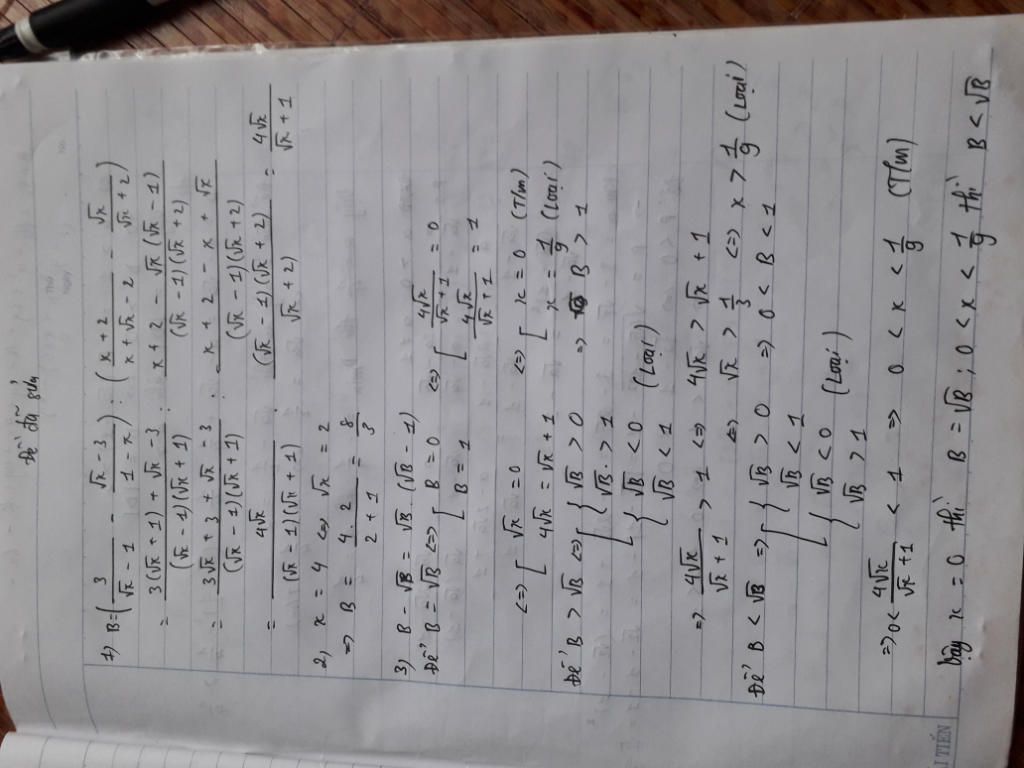 Đề đã sửa
1) B=(3/(√x - 1) - (√x - 3)/(1 - x)) : ((x + 2)/(x + √x - 2) - √x/(√x + 2))
= (3(√x + 1) + √x - 3)/((√x - 1)(√x + 1)) : (x + 2 - √x(√x - 1))/((√x - 1)(√x + 2))
= (3√x + 3 + √x - 3)/((√x - 1)(√x + 1)) : (x + 2 - x + √x)/((√x - 1)(√x + 2))
= 4√x/((√x - 1)(√x + 1)) . ((√x - 1)(√x + 2))/(√x + 2) = 4√x/(√x + 1)
2) x = 4 <=> √x = 2
=> B = (4.2)/(2 + 1) = 8/3
3) B - √B = √B . (√B - 1)
Để B = √B <=> [ B = 0 <=> [ 4√x/(√x + 1) = 0
B = 1 4√x/(√x + 1) = 1
<=> [ √x = 0 <=> [ x = 0 (T/m)
4√x = √x + 1 x = 1/9 (Loại)
Để B > √B <=> [ { √B > 0 => B > 1
√B > 1
{ √B < 0 (Loại)
√B < 1
=> 4√x/(√x + 1) > 1 <=> 4√x > √x + 1
<=> √x > 1/3 <=> x > 1/9 (Loại)
Để B < √B => [ { √B > 0 => 0 < B < 1
√B < 1
{ √B < 0 (Loại)
√B > 1
=> 0 < 4√x/(√x + 1) < 1 => 0 < x < 1/9 (T/m)
Vậy x = 0 thì B = √B ; 0 < x < 1/9 thì B < √B